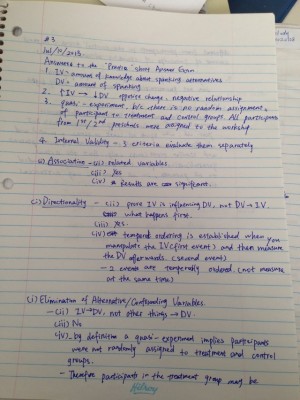 #3
Answers to the "Previous" Short Answer Exam
1. IV - amount of knowledge about spanking alternatives
DV - amount of spanking
2. ↑IV → ↓DV opposite change, negative relationship
3. quasi - experiment, b/c there is no random assignment
of participant to treatment and control groups. All participants
from 1st/2nd were assigned to the workshop
4. Internal Validity - 3 criteria evaluate them separately
(i) Association - (ii) related variables
(iii) Yes
(iv) Results are significant.
(i) Directionality - (ii) prove IV is influencing DV, not DV → IV.
what happens first.
(iii) Yes.
(iv) temporal ordering is established when you
manipulate the IV (first event) and then measure
the DV afterwards. (second event)
- 2 events are temporally ordered. (not measure
at the same time)
(i) Elimination of Alternative/Confounding Variables.
- (ii) IV → DV, not other things → DV.
(iii) No
(iv) by definition a quasi-experiment implies participants
were not randomly assigned to treatment and control
groups.
- Therefore participants in the treatment group may be
Hilroy